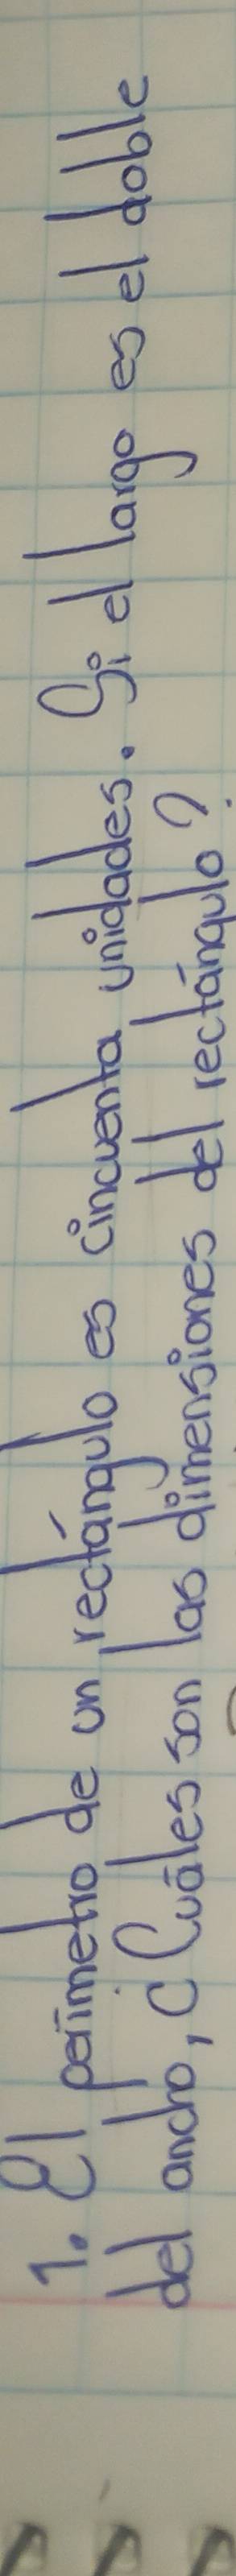 1. El perímetro de un rectángulo es cincuenta unidades. Si el largo es el doble
del ancho, ¿Cuáles son las dimensiones del rectángulo?